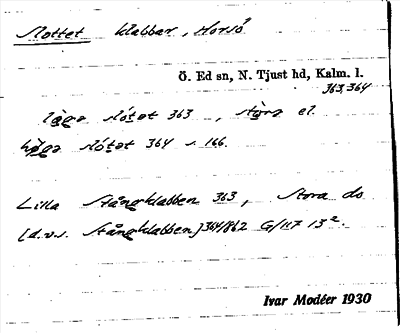 Slottet klabbar, Horsö
Ö. Ed sn, N. Tjust hd, Kalm. l.
363, 364
låga slótət 363, stòra el.
høga slótət 364 s. 166.
Lilla Stångklabben 363, Stora do
(d.v.s. Stångklabben) 364/862 G/117 13².
Ivar Modéer 1930